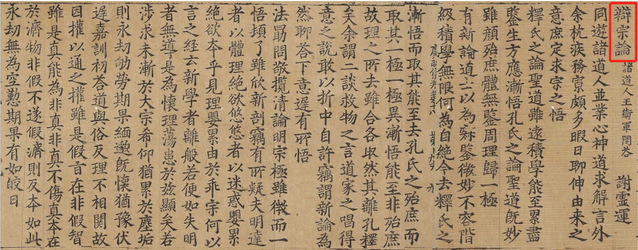 辯宗論 諸道人王衛軍問答 謝靈運
同遊諸道人並業心神道求解言外
余枕疾務寡頗多暇日聊伸由來之
意庶定求宗之悟
釋氏之論聖道雖遠積學能至累盡
鑒生方應漸悟孔氏之論聖道既妙
雖顏殆庶體無鑒周理歸一極
有新論道士以為寂鑒微妙不容階
級積學無限何為自絕今去釋氏之
漸悟而取其能至去孔氏之殆庶而
取其一極一極異漸悟能至非殆庶
故理之所去雖合各取然其離孔釋
矣余謂二談救物之言道家之唱得
意之說敢以折中自許竊謂新論為
然聊答下意遲有所悟
法勗問敬覽清論明宗極雖微而一
悟頓了雖欣新剖竊有所疑夫明達
者以體理絕欲悠悠者以迷惑嬰累
絕欲本乎見理嬰累由於乖宗何以
言之經云新學者離般若便如失明
者無導是為懷理蕩患於茲顯矣若
涉求未漸於大宗希仰猶累於塵垢
則永劫劬勞期果緬邈既懷猶豫伏
遲嘉訓初答道與俗反理不相關故
因權以通之權雖是假旨在非假智
雖是真能為非真非真不傷真本在
於濟物非假不遂假濟則反本如此
永劫無為空勤期果有如皎日